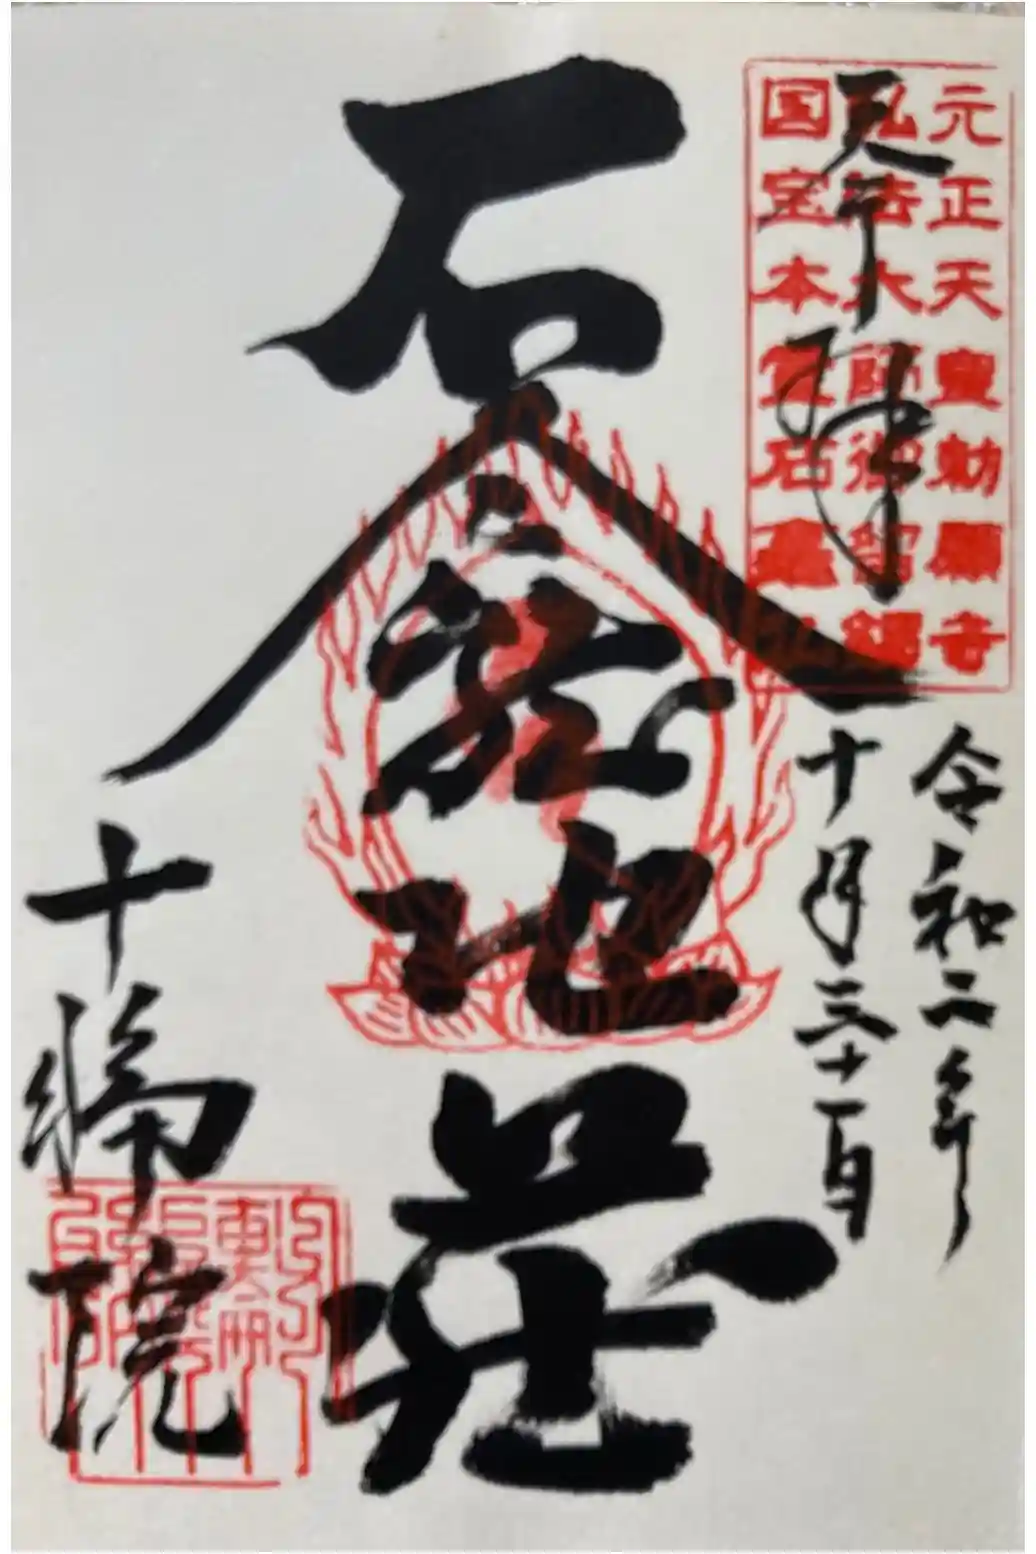 元正天皇勅願寺
弘法大師御留錫
国宝本堂石龕仏
奉拝
令和二年
十月三十一日
石龕地蔵
十輪院